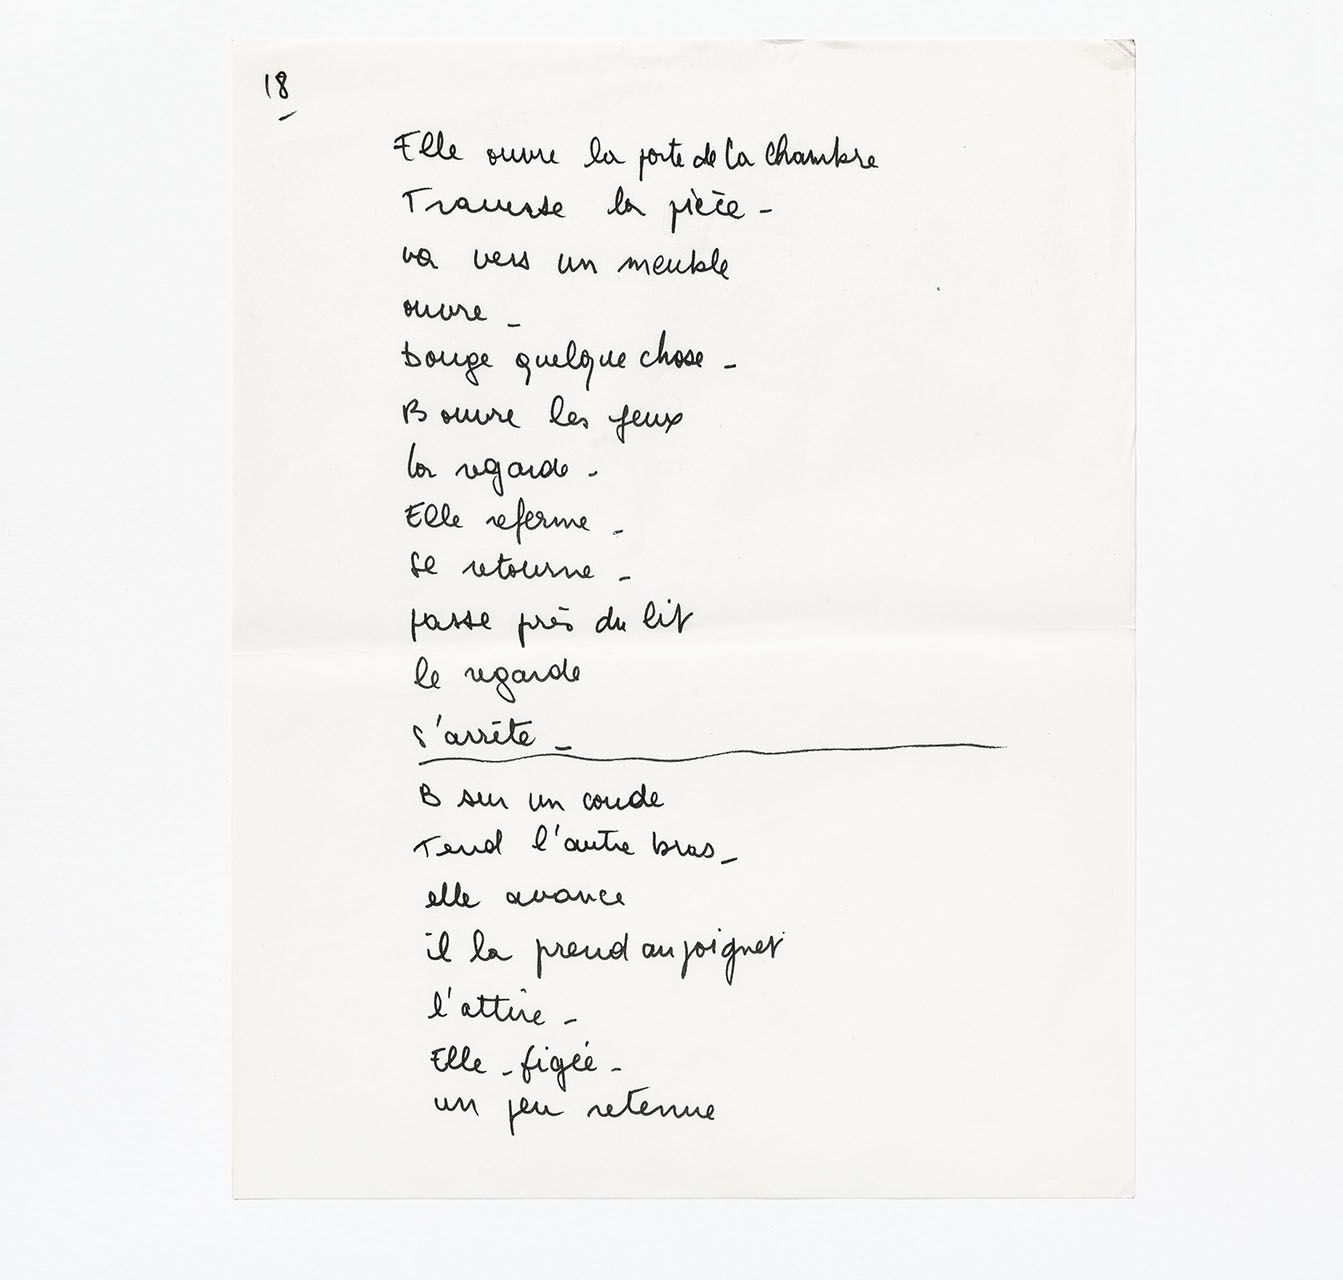 18
Elle ouvre la porte de la chambre
Traverse la pièce -
va vers un meuble
ouvre -
bouge quelque chose -
B ouvre les yeux
la regarde -
Elle referme -
se retourne -
passe près du lit
le regarde
s'arrête -
B sur un coude
Tend l'autre bras -
elle avance
il la prend au poignet
l'attire -
Elle - figée -
un peu retenue